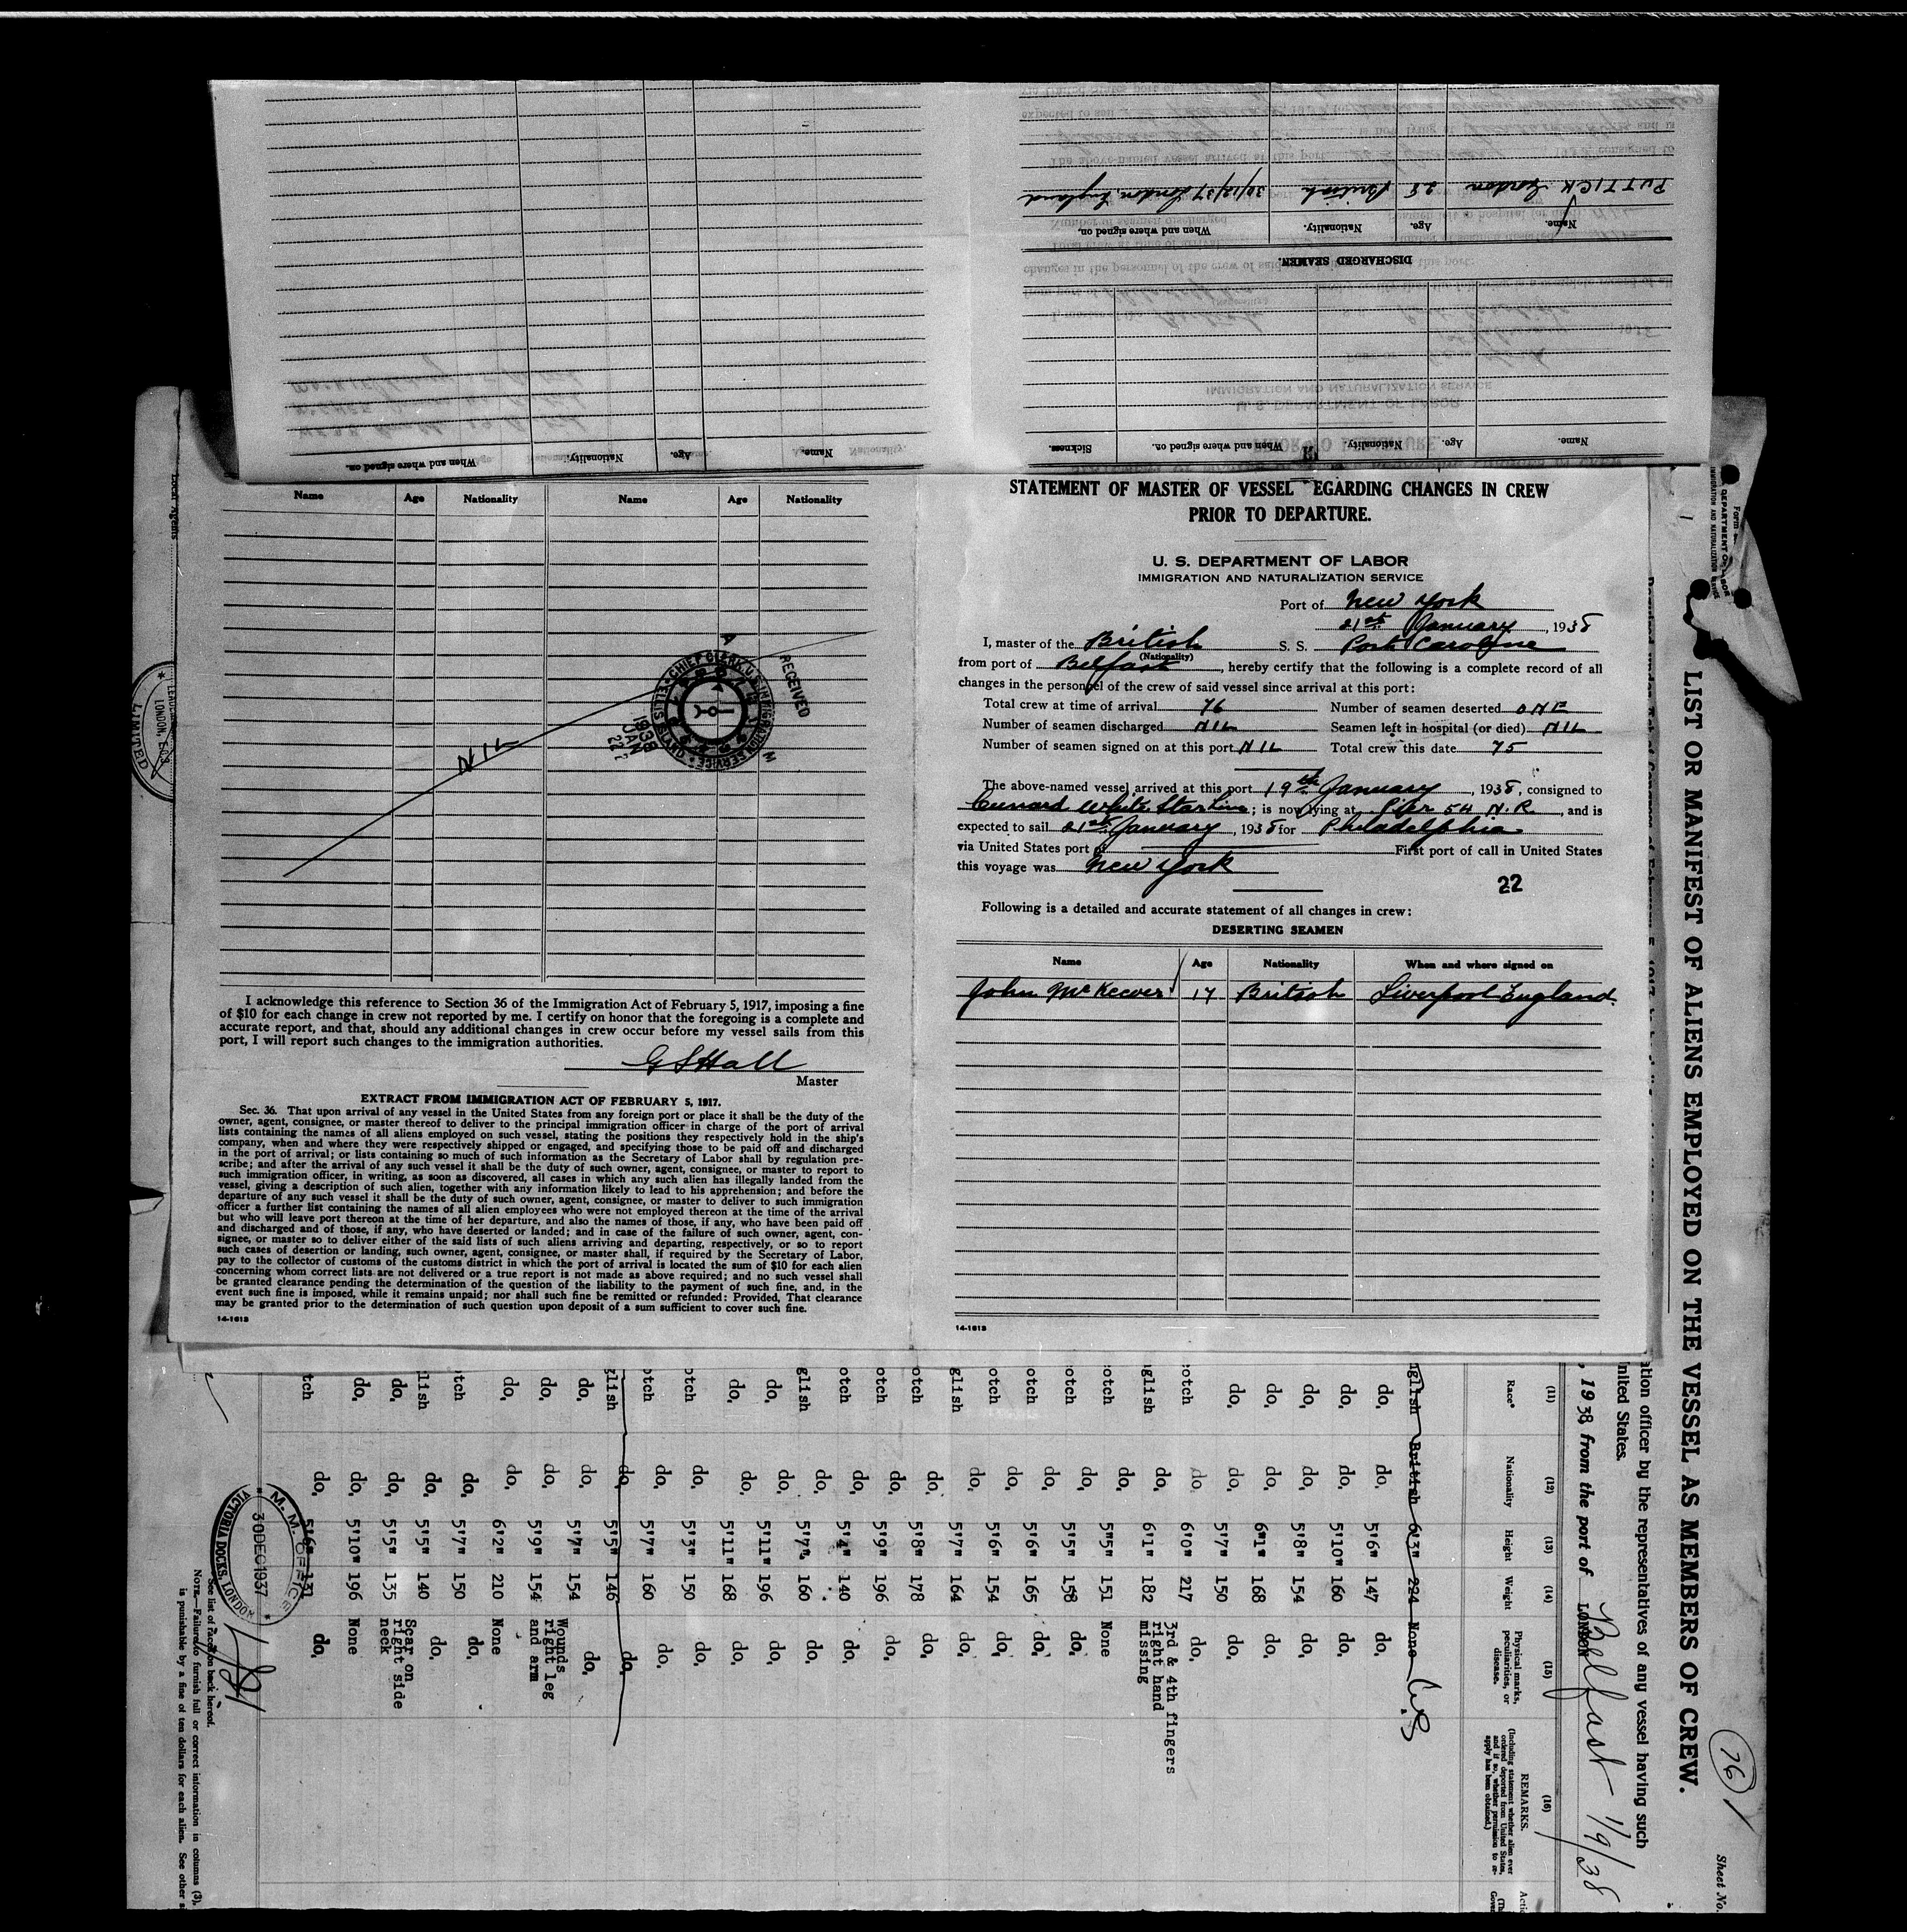 Name Age Nationality Name Age Nationality
NIL
RECEIVED
CHIEF CLERK, U.S. IMMIGRATION SERVICE
ELLIS ISLAND
1938 JAN 22
A M
I acknowledge this reference to Section 36 of the Immigration Act of February 5, 1917, imposing a fine
of $10 for each change in crew not reported by me. I certify on honor that the foregoing is a complete and
accurate report, and that, should any additional changes in crew occur before my vessel sails from this
port, I will report such changes to the immigration authorities.
G S Hall
Master
EXTRACT FROM IMMIGRATION ACT OF FEBRUARY 5, 1917.
Sec. 36. That upon arrival of any vessel in the United States from any foreign port or place it shall be the duty of the
owner, agent, consignee, or master thereof to deliver to the principal immigration officer in charge of the port of arrival
lists containing the names of all aliens employed on such vessel, stating the positions they respectively hold in the ship's
company, when and where they were respectively shipped or engaged, and specifying those to be paid off and discharged
in the port of arrival; or lists containing so much of such information as the Secretary of Labor shall by regulation pre-
scribe; and after the arrival of any such vessel it shall be the duty of such owner, agent, consignee, or master to report to
such immigration officer, in writing, as soon as discovered, all cases in which any such alien has illegally landed from the
vessel, giving a description of such alien, together with any information likely to lead to his apprehension; and before the
departure of any such vessel it shall be the duty of such owner, agent, consignee, or master to deliver to such immigration
officer a further list containing the names of all alien employees who were not employed thereon at the time of the arrival
but who will leave port thereon at the time of her departure, and also the names of those, if any, who have been paid off
and discharged and of those, if any, who have deserted or landed; and in case of the failure of such owner, agent, con-
signee, or master so to deliver either of the said lists of such aliens arriving and departing, respectively, or so to report
such cases of desertion or landing, such owner, agent, consignee, or master shall, if required by the Secretary of Labor,
pay to the collector of customs of the customs district in which the port of arrival is located the sum of $10 for each alien
concerning whom correct lists are not delivered or a true report is not made as above required; and no such vessel shall
be granted clearance pending the determination of the question of the liability to the payment of such fine, and, in the
event such fine is imposed, while it remains unpaid; nor shall such fine be remitted or refunded: Provided, That clearance
may be granted prior to the determination of such question upon deposit of a sum sufficient to cover such fine.
14-1613
STATEMENT OF MASTER OF VESSEL EGARDING CHANGES IN CREW
PRIOR TO DEPARTURE.
U. S. DEPARTMENT OF LABOR
IMMIGRATION AND NATURALIZATION SERVICE
Port of New York
21st January, 1938
I, master of the British S. S. Port Caroline
(Nationality)
from port of Belfast, hereby certify that the following is a complete record of all
changes in the personnel of the crew of said vessel since arrival at this port:
Total crew at time of arrival 76 Number of seamen deserted ONE
Number of seamen discharged NIL Seamen left in hospital (or died) NIL
Number of seamen signed on at this port NIL Total crew this date 75
The above-named vessel arrived at this port 19th January, 1938, consigned to
Cunard White Star Line; is now lying at Pier 54 N.R., and is
expected to sail 21st January, 1938 for Philadelphia
via United States port of First port of call in United States
this voyage was New York
22
Following is a detailed and accurate statement of all changes in crew:
DESERTING SEAMEN
Name Age Nationality When and where signed on
John McKeever 17 British Liverpool England.
14-1613
DISCHARGED SEAMEN.
Name. Age. Nationality. When and where signed on.
PUTTICK Gordon 25 British 30/12/37 London, England
Name. Age. Nationality. When and where signed on. Sickness.
Name. Age. Nationality. When and where signed on.
LIST OR MANIFEST OF ALIENS EMPLOYED ON THE VESSEL AS MEMBERS OF CREW.
Sheet No.
76
ation officer by the representatives of any vessel having such
nited States.
, 1938 from the port of LONDON Belfast 1/9/38
(11) (12) (13) (14) (15) (16)
Race* Nationality Height Weight Physical marks, peculiarities, or disease. REMARKS.
(Including statement whether alien ever
ordered deported from United States,
and if so, whether permission to re-
apply has been obtained.)
glish British 6'3" 224 None
do. do. 5'6" 147 do.
do. do. 5'10" 160 do.
do. do. 5'8" 154 do.
do. do. 6'1" 168 do.
do. do. 5'7" 150 do.
otch do. 6'0" 217 do.
glish do. 6'1" 182 3rd & 4th fingers right hand missing
otch do. 5'5" 151 None
otch do. 5'5" 158 do.
otch do. 5'6" 165 do.
otch do. 5'6" 154 do.
glish do. 5'7" 164 do.
otch do. 5'8" 178 do.
otch do. 5'9" 196 do.
otch do. 5'4" 140 do.
glish do. 5'7" 160 do.
do. do. 5'11" 196 do.
do. do. 5'11" 168 do.
otch do. 5'3" 150 do.
otch do. 5'7" 160 do.
glish do. 5'5" 146 do.
do. do. 5'7" 154 do.
do. do. 5'9" 154 Wounds right leg and arm
do. do. 6'2" 210 None
tch do. 5'7" 150 do.
lish do. 5'5" 140 do.
do. do. 5'5" 135 Scar on right side neck
do. do. 5'10" 196 None
tch do. 5'6" 131 do.
M. M. OFFICE
30DEC1937
VICTORIA DOCKS, LONDON
See list of races on back hereof.
NOTE.—Failure to furnish full or correct information in columns (3),
is punishable by a fine of ten dollars for each alien. See other s
Local Agents
LONDON, E.C.3
LIMITED